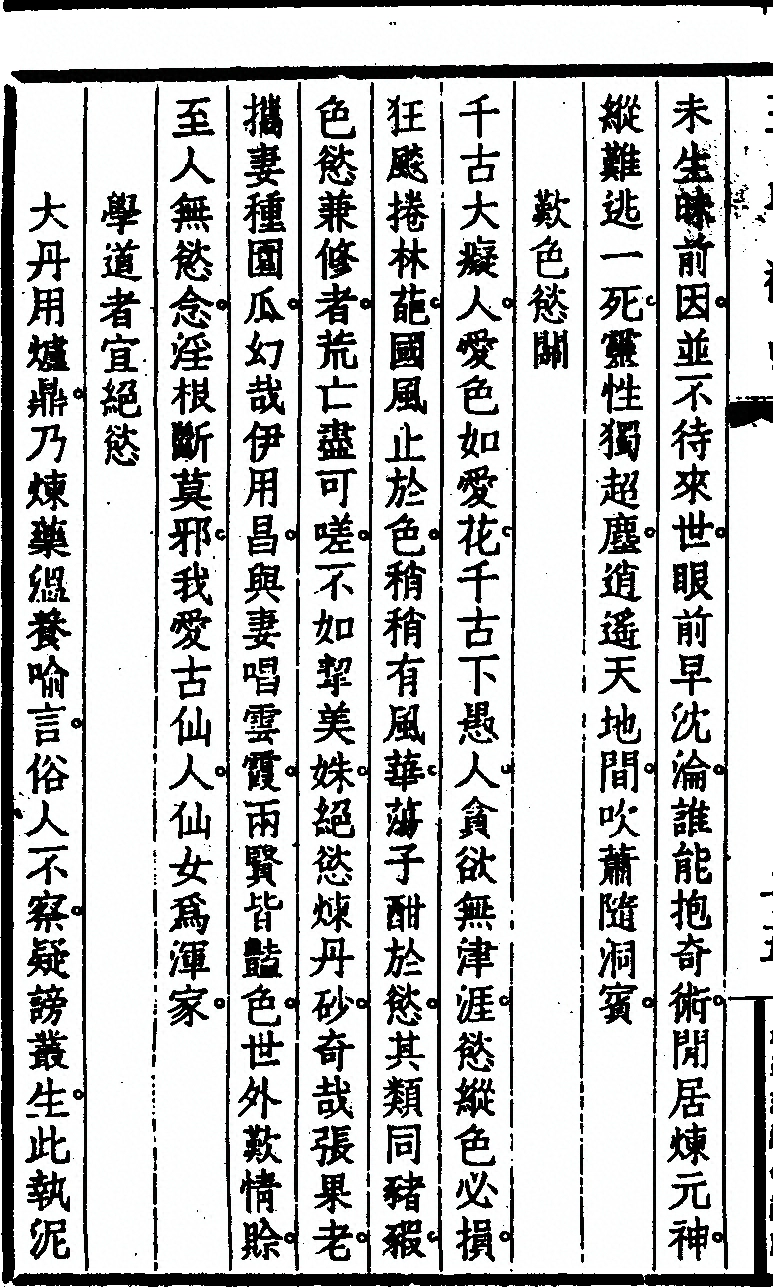 未生昧前因並不待來世眼前早沈淪誰能抱奇術閒居煉元神
縱難逃一死靈性獨超塵逍遙天地間吹蕭隨洞賓
歎色慾關
千古大癡人愛色如愛花千古下愚人貪欲無津涯慾縱色必損
狂飇捲林葩國風止於色稍稍有風華蕩子酣於慾其類同豬豭
色慾兼修者荒亡盡可嗟不如犂美姝絕慾煉丹砂奇哉張果老
攜妻種園瓜幻哉伊用昌與妻唱雲霞兩賢皆豔色世外歎情賒
至人無慾念淫根斷莫邪我愛古仙人仙女爲渾家
學道者宜絕慾
大丹用爐鼎乃煉藥溫養喻言俗人不察疑謗叢生此執泥